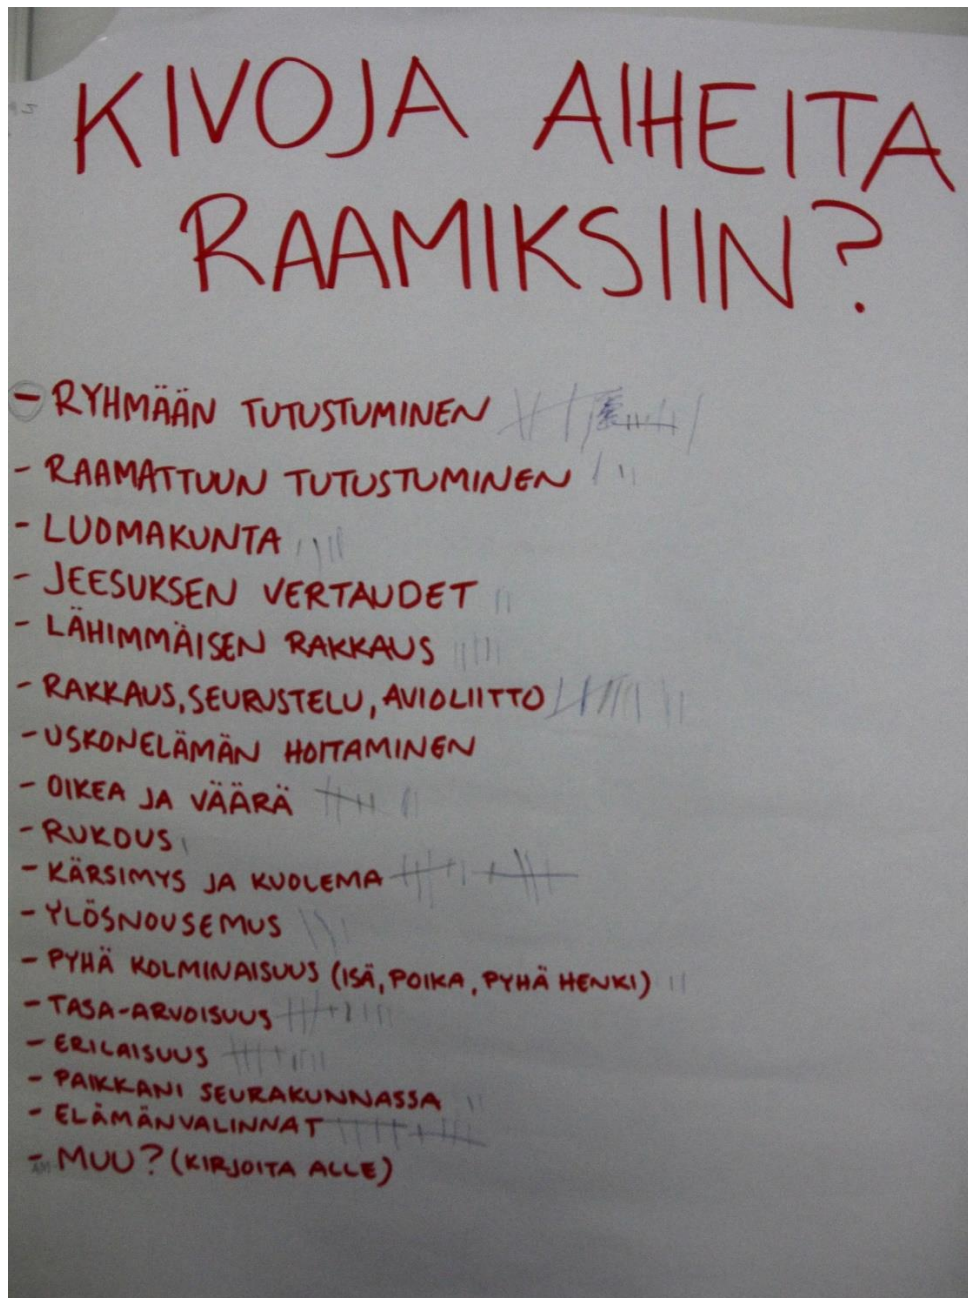 KIVOJA AIHEITA
RAAMIKSIIN?
- RYHMÄÄN TUTUSTUMINEN
- RAAMATTUUN TUTUSTUMINEN
- LUOMAKUNTA
- JEESUKSEN VERTAUDET
- LÄHIMMÄISEN RAKKAUS
- RAKKAUS, SEURUSTELU, AVIOLIITTO
- USKONELÄMÄN HOITAMINEN
- OIKEA JA VÄÄRÄ
- RUKOUS
- KÄRSIMYS JA KUOLEMA
- YLÖSNOUSEMUS
- PYHÄ KOLMINAISUUS (ISÄ, POIKA, PYHÄ HENKI)
- TASA-ARVOISUUS
- ERILAISUUS
- PAIKKANI SEURAKUNNASSA
- ELÄMÄNVALINNAT
- MUU? (KIRJOITA ALLE)